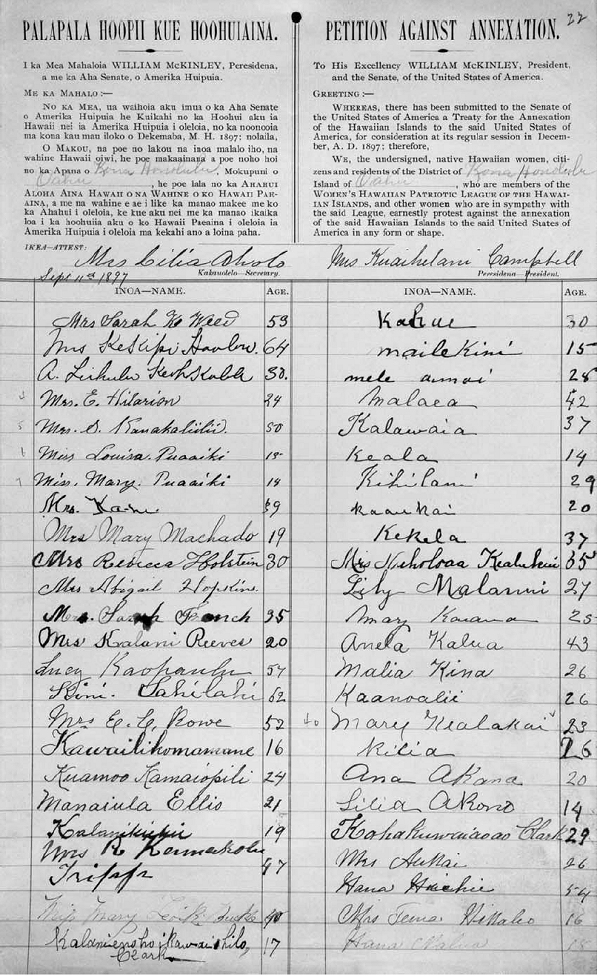 22
PALAPALA HOOPII KUE HOOHUIAINA.
I ka Mea Mahaloia WILLIAM McKINLEY, Peresidena,
a me ka Aha Senate, o Amerika Huipuia.
ME KA MAHALO:—
NO KA MEA, ua waihoia aku imua o ka Aha Senate
o Amerika Huipuia he Kuikahi no ka Hoohui aku ia
Hawaii nei ia Amerika Huipuia i oleloia, no ka noonooia
ma kona kau mau iloko o Dekemaba, M. H. 1897; nolaila,
O MAKOU, na poe no lakou na inoa malalo iho, na
wahine Hawaii oiwi, he poe makaainana a poe noho hoi
no ka Apana o Kona Honolulu, Mokupuni o
Oahu, he poe lala no ka AHAHUI
ALOHA AINA HAWAII O NA WAHINE O KO HAWAII PAE-
AINA, a me na wahine e ae i like ka manao makee me ko
ka Ahahui i oleloia, ke kue aku nei me ka manao ikaika
loa i ka hoohuiia aku o ko Hawaii Paeaina i oleloia ia
Amerika Huipuia i oleloia ma kekahi ano a loina paha.
PETITION AGAINST ANNEXATION.
To His Excellency WILLIAM McKINLEY, President,
and the Senate, of the United States of America.
GREETING:—
WHEREAS, there has been submitted to the Senate of
the United States of America a Treaty for the Annexation
of the Hawaiian Islands to the said United States of
America, for consideration at its regular session in Decem-
ber, A. D. 1897; therefore,
WE, the undersigned, native Hawaiian women, citi-
zens and residents of the District of Kona Honolulu
Island of Oahu, who are members of the
WOMEN'S HAWAIIAN PATRIOTIC LEAGUE OF THE HAWAII-
AN ISLANDS, and other women who are in sympathy with
the said League, earnestly protest against the annexation
of the said Hawaiian Islands to the said United States of
America in any form or shape.
IKEA—ATTEST:
Mrs Lilia Aholo
Sept 11th 1897
Kakauolelo—Secretary.
Mrs Kuaihelani Campbell
Peresidena—President.
INOA—NAME. AGE.
Mrs Sarah K Weed 53
Mrs 64
A. 30.
Mrs. E. Hilarion 24
Mrs. D. Kanakaliilii. 50
Miss Louisa Puaaiki 15
Miss. Mary. Puaaiki 18
Mrs. 39
Mrs Mary Machado 19
Mrs Rebecca Holstein 30
Mrs Abigail Hopkins.
Mrs. Sarah French 35
Mrs Kalani Reeves 20
Lucy 57
Lahilahi 62
Mrs E. C. Rowe 52
Kawailihomamane 16
Kuamoo Kamaiopili 24
Manaiula Ellis 21
19
Mrs R
47
Miss Mary 40
17
Clark
INOA—NAME. AGE.
Kahue 30
mailekini 15
mele 28
Malaea 42
Kalawaia 37
Keala 14
Kihilani 29
kaaukai 20
Kekela 37
Mrs 35
Lily Malanui 27
Mary 25
Anela Kalua 43
Malia Kina 26
Kaanoalii 26
40 Mary Kealakai 23
Kilia 26
Ana Akana 20
Lilia Akono 14
Clark 29
Mrs Aukai 26
Hana 54
Mrs 16
Hana